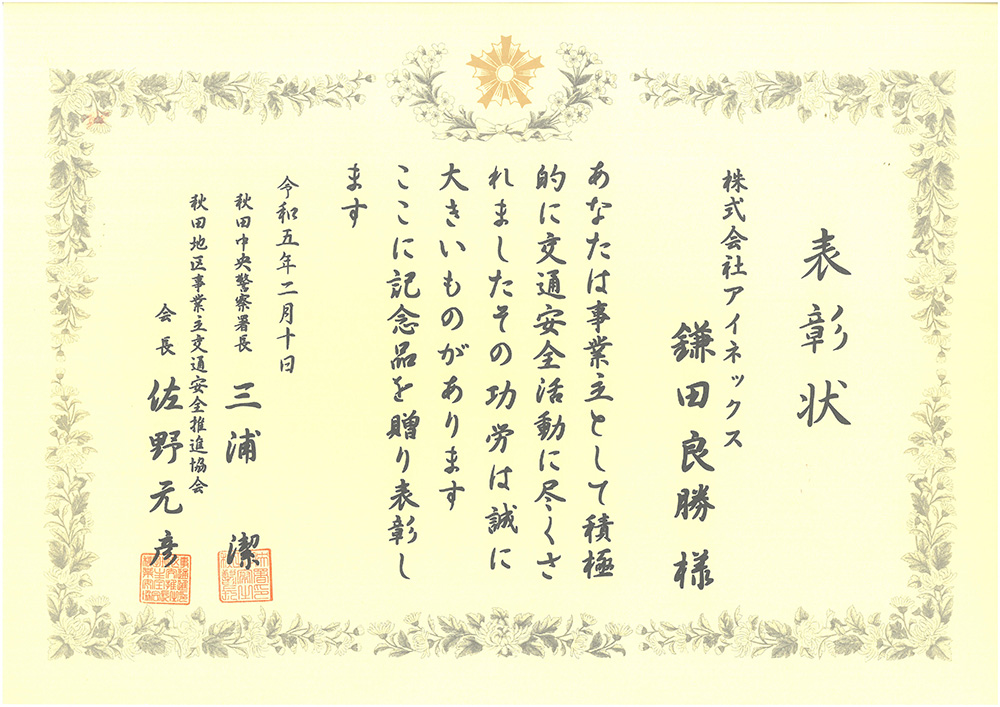 表彰状
株式会社アイネックス
鎌田良勝 様
あなたは事業主として積極
的に交通安全活動に尽くさ
れましたその功労は誠に
大きいものがあります
ここに記念品を贈り表彰し
ます
令和五年二月十日
秋田中央警察署長 三浦 潔
秋田地区事業主交通安全推進協会
会長 佐野元彦